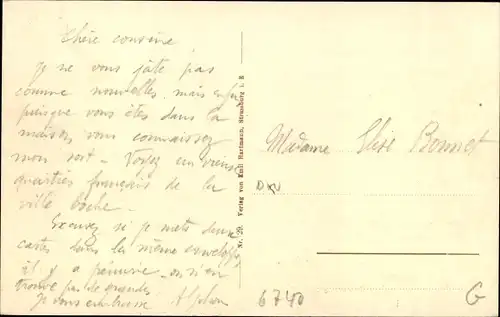 Chère cousine
Je ne vous gâte pas
comme nouvelles, mais enfin
puisque vous êtes dans la
maison, vous connaissez
mon sort - Voilà un vieux
quartier français de la
ville boche.
Excusez si je mets deux
cartes dans la même enveloppe,
il y a pénurie - on n'en
trouve pas de grandes.
Je vous embrasse Alphon
Nr. 29. Verlag von Emil Hartmann, Strassburg i. E
Madame Elise Bonnet
6740
G